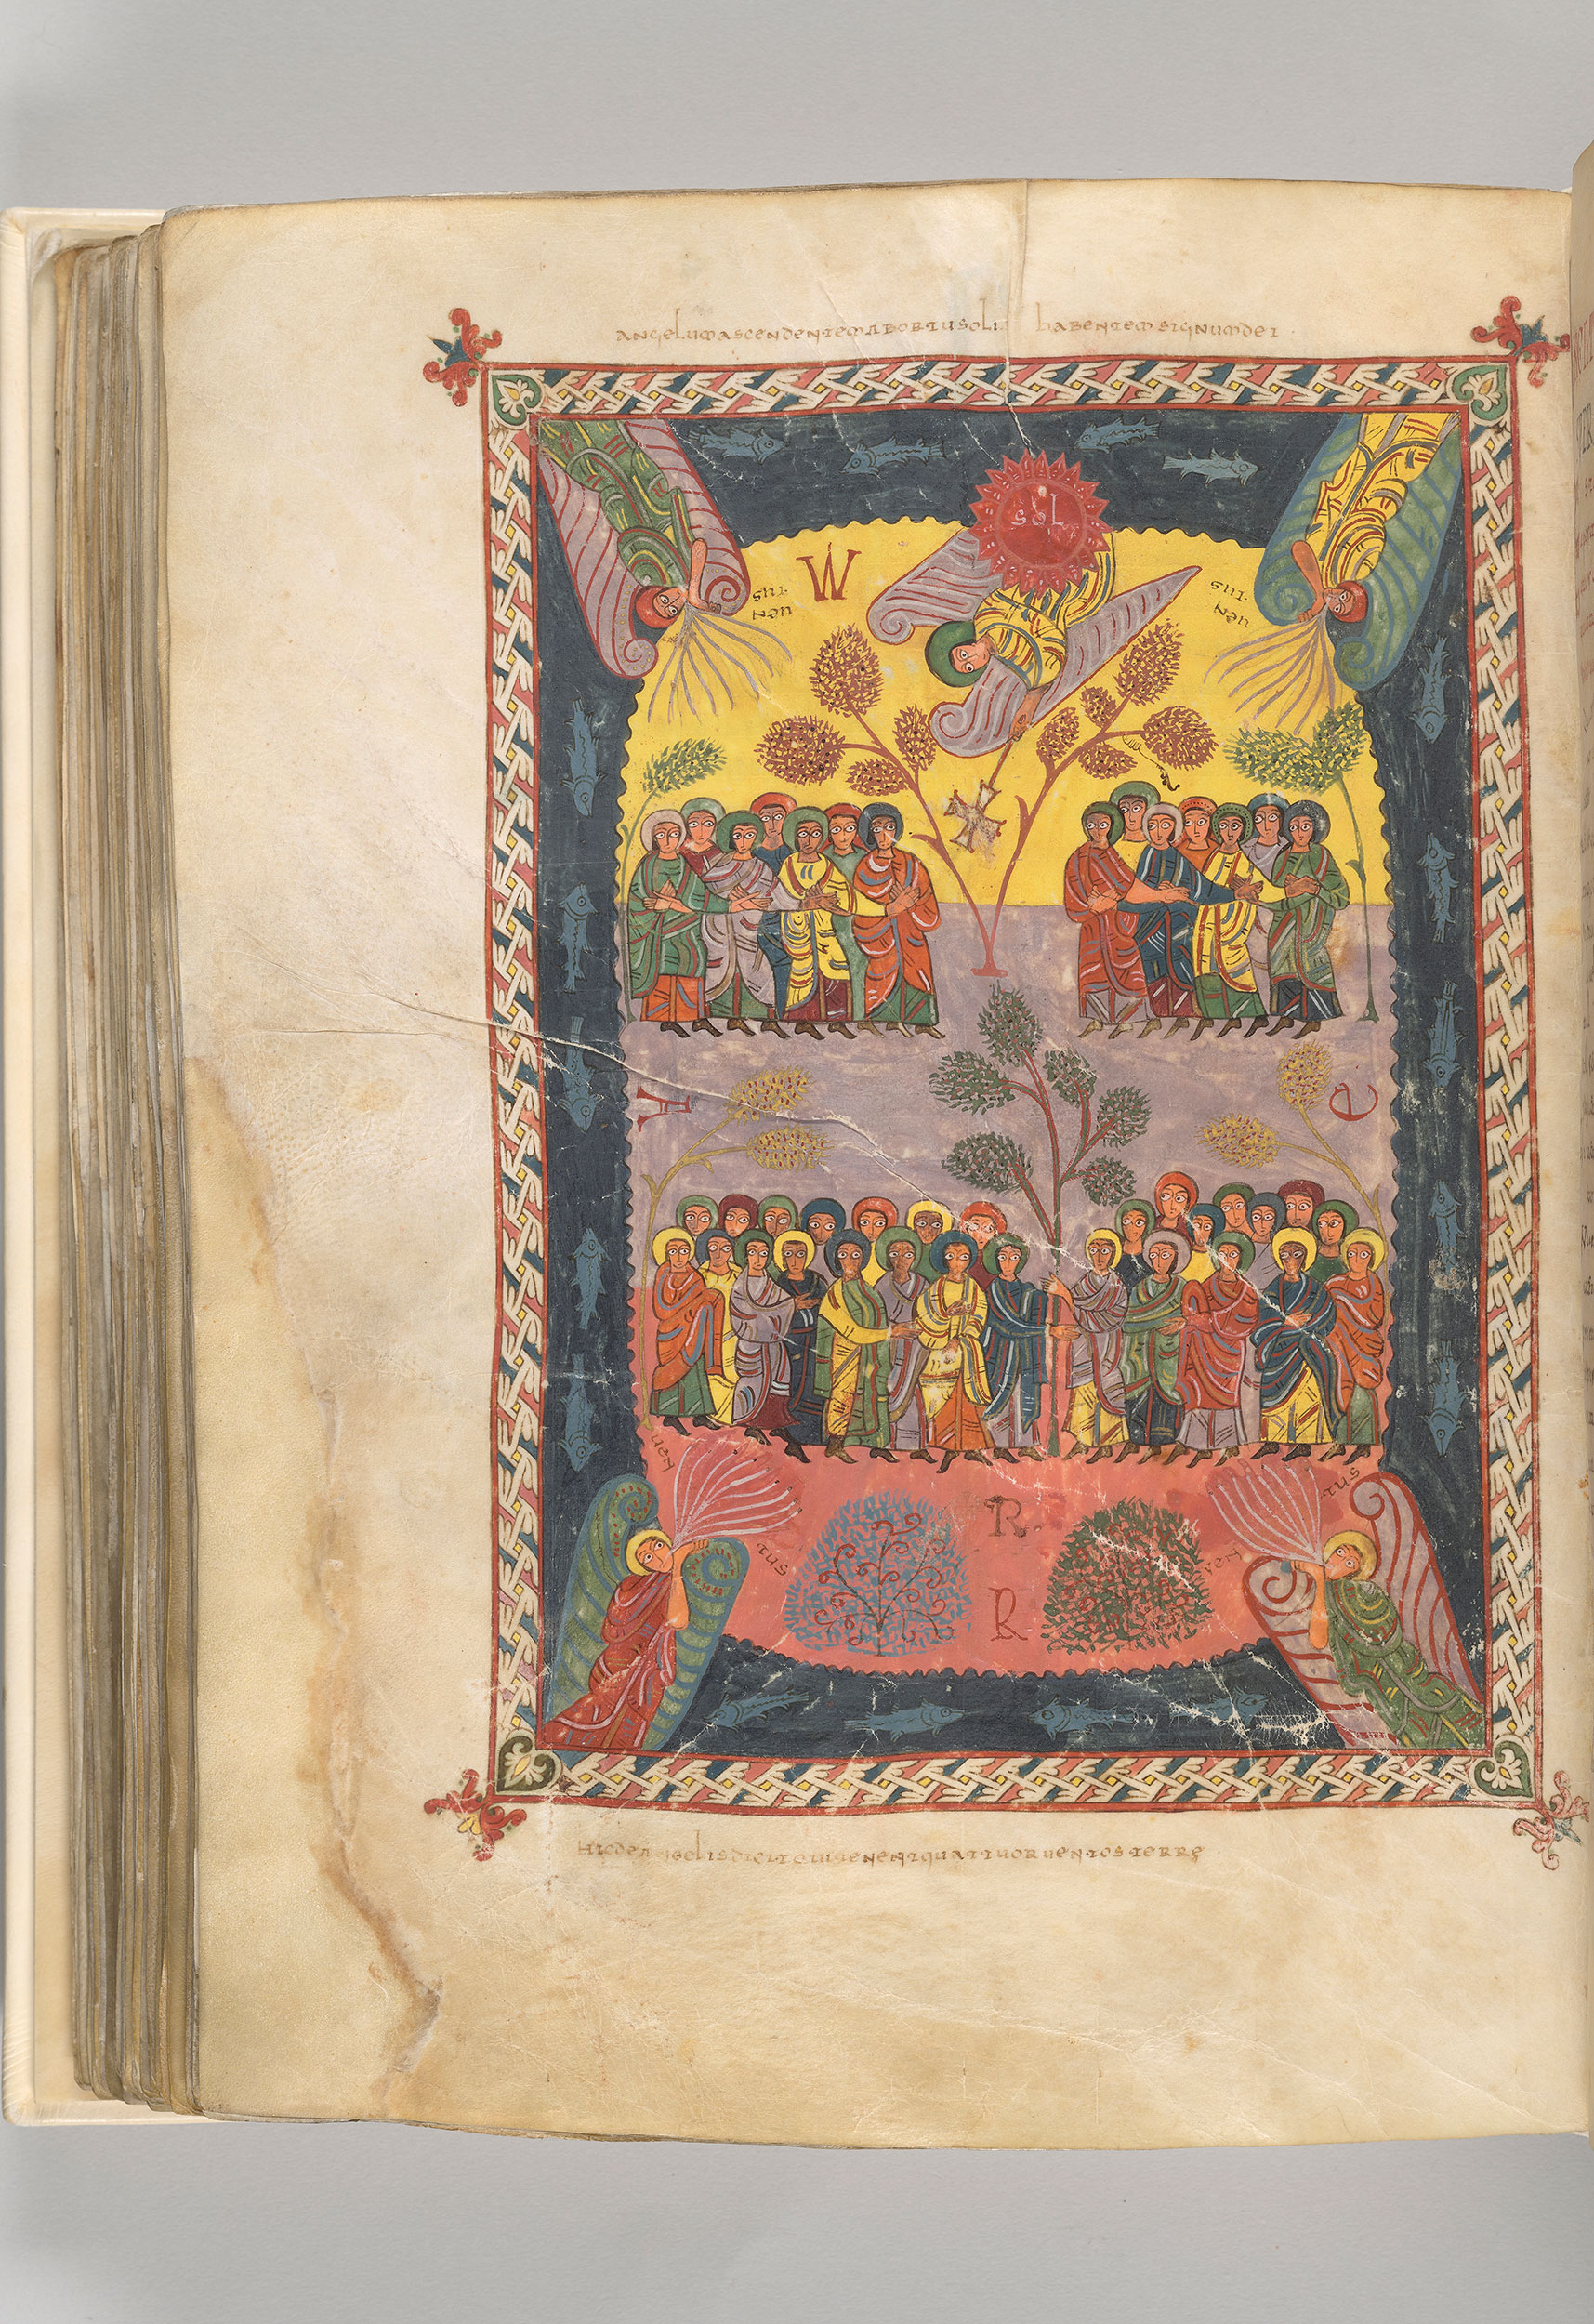 angelum ascendentem ab ortu soli habentem signum dei
sol
W
uen
tus
uen
tus
T
E
uen
tus
uen
tus
R
R
hic de angelis dicit qui tenent quattuor uentos terre